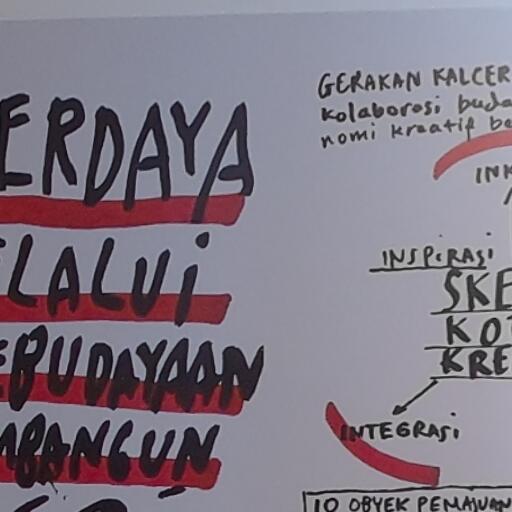 ERDAYA
ELALUI
EBUDAYAAN
MBANGUN
GERAKAN KALCER
kolaborasi buda
nomi kreatif be
INK
INSPIRASI
SKE
KOT
KRE
INTEGRASI
10 OBYEK PEMAJUAN